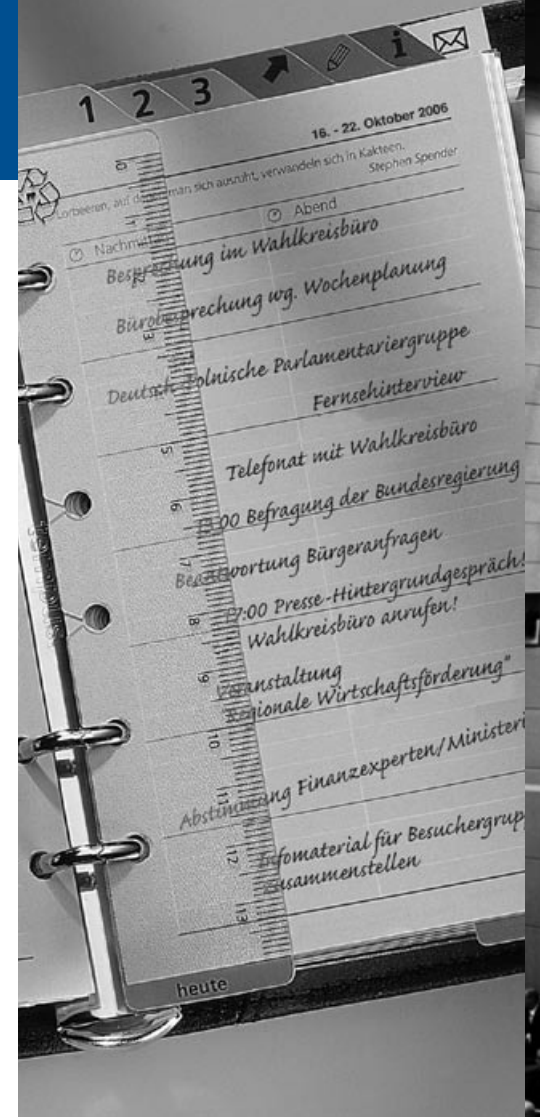 1 2 3 i
16. - 22. Oktober 2006
Lorbeeren, auf denen man sich ausruht, verwandeln sich in Kakteen.
Stephen Spender
Nachmittag Abend
Besprechung im Wahlkreisbüro
Bürobesprechung wg. Wochenplanung
Deutsch-Polnische Parlamentariergruppe
Fernsehinterview
Telefonat mit Wahlkreisbüro
13:00 Befragung der Bundesregierung
Beantwortung Bürgeranfragen
17:00 Presse-Hintergrundgespräch!
Wahlkreisbüro anrufen!
Veranstaltung
"Regionale Wirtschaftsförderung"
Abstimmung Finanzexperten/Ministeri
Infomaterial für Besuchergrup
zusammenstellen
0 1 2 3 5 6 7 8 9 10 11 12 13
heute